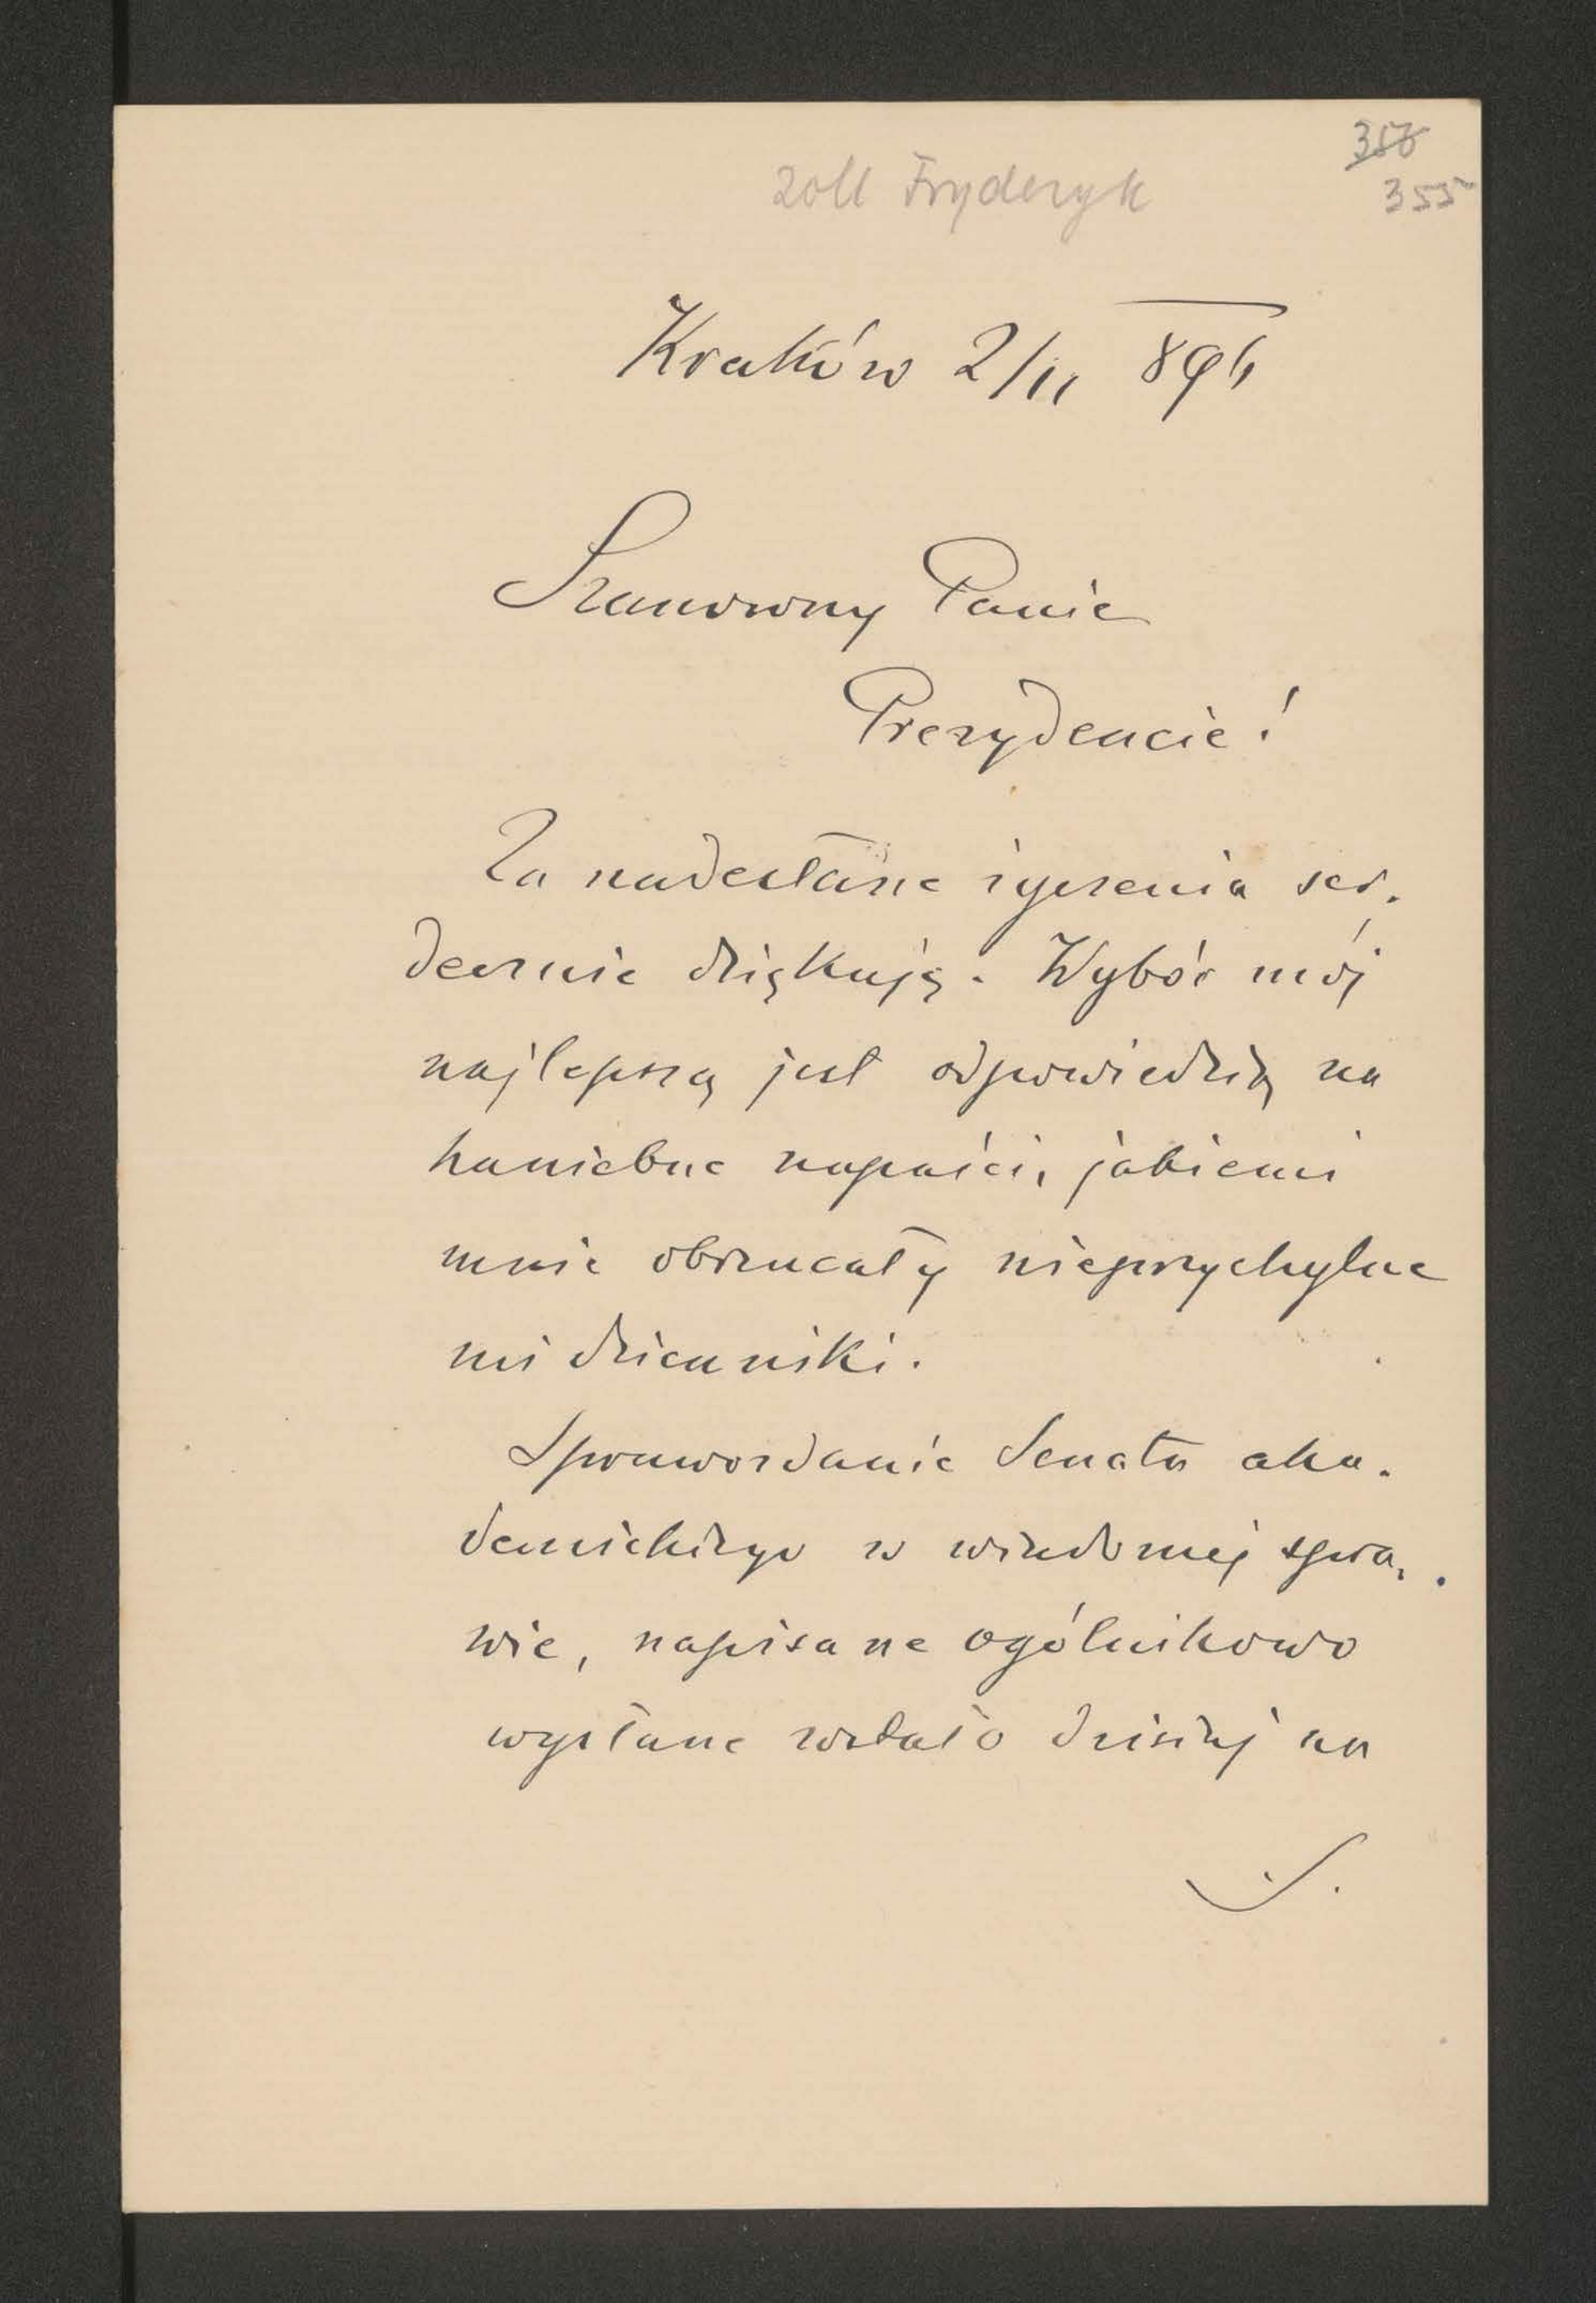 356
355
Zoll Fryderyk
Kraków 2/11 894
Szanowny Panie
Prezydencie!
Za nadesłane życzenia ser-
decznie dziękuję. Wybór mój
najlepszą jest odpowiedzią na
haniebne napaści, jakiemi
mnie obrzucały nieprzychylne
mi dzienniki.
Sprawozdanie Senatu aka-
demickiego w wiadomej spra-
wie, napisane ogólnikowo
wysłane zostało dzisiaj na